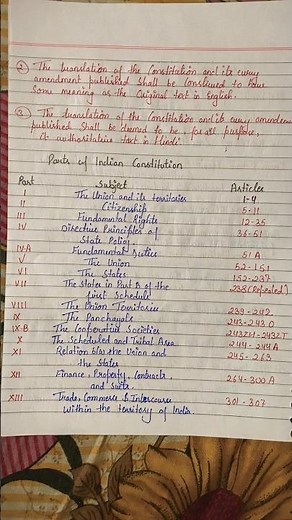 ② The translation of the Constitution and its every
amendment published shall be construed to have
same meaning as the Original text in English.
③ The translation of the Constitution and its every amendment
published shall be deemed to be, for all purpose,
it authoritative text in Hindi
Parts of Indian Constitution
Part Subject Articles
I The Union and its territories 1-4
II Citizenship 5-11
III Fundamental Rights 12-35
IV Directive Principles of 36-51
State Policy.
IV-A Fundamental Duties 51A
V The Union 52-151
VI The States 152-237
VII The States in Part B of the 238 (Repealed)
first Schedule
VIII The Union Territories 239-242
IX The Panchayats 243-243 O
IX-B The Cooperative Societies 243ZH-243ZT
X The Scheduled and Tribal Area 244-244A
XI Relation b/w the Union and 245-263
the States
XII Finance, Property, Contracts 264-300A
and Suits.
XIII Trade, Commerce & Intercourse 301-307
within the territory of India.